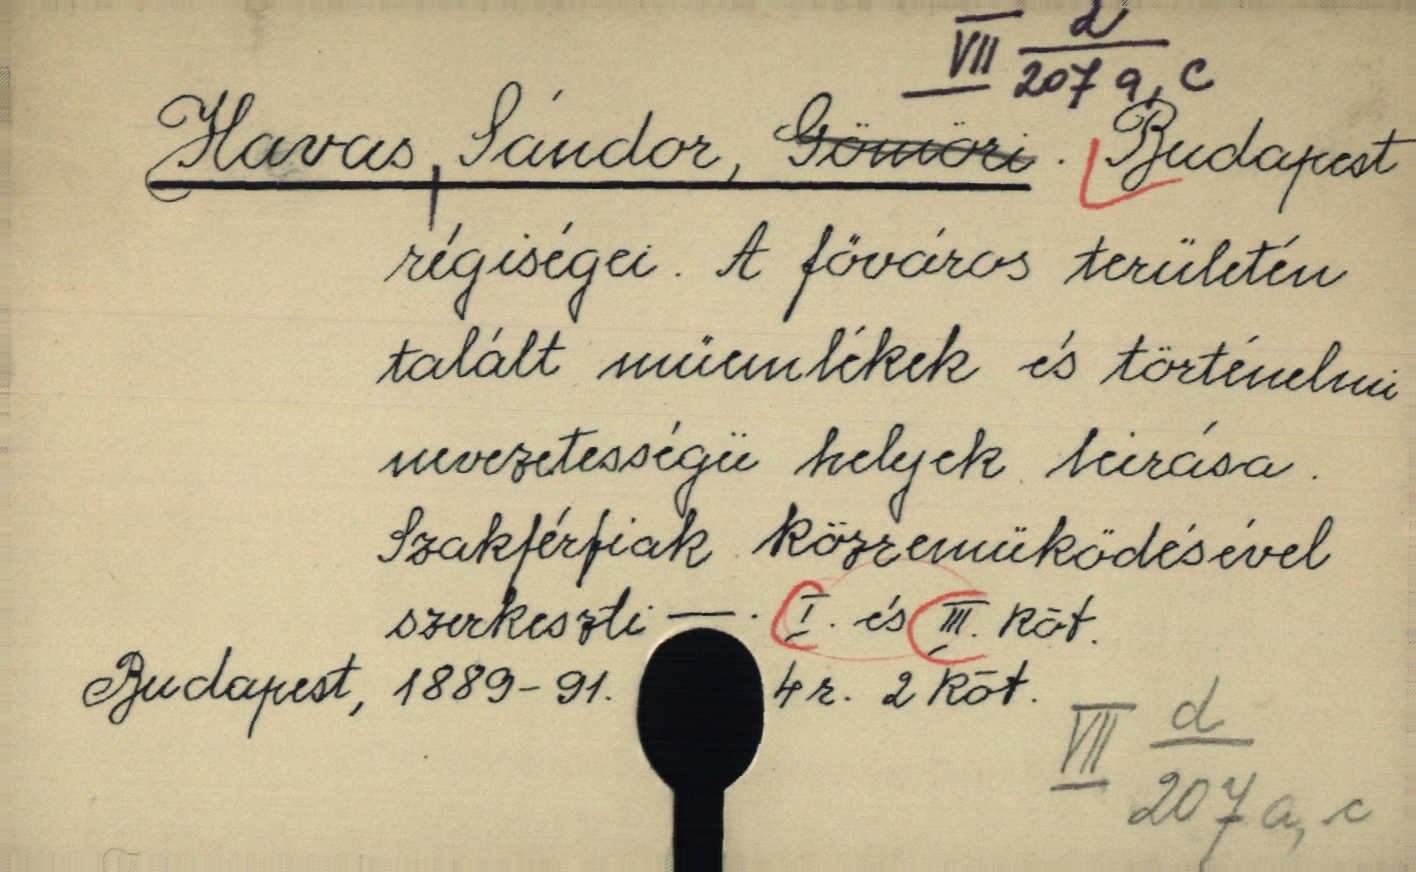 VII d/207 a, c
Havas, Sándor, Gömöri. Budapest
régiségei. A főváros területén
talált müemlékek és történelmi
nevezetességü helyek leirása.
Szakférfiak közremüködésével
szerkeszti —. I. és III. köt.
Budapest, 1889-91. 4r. 2 köt.
VII d/207 a, c